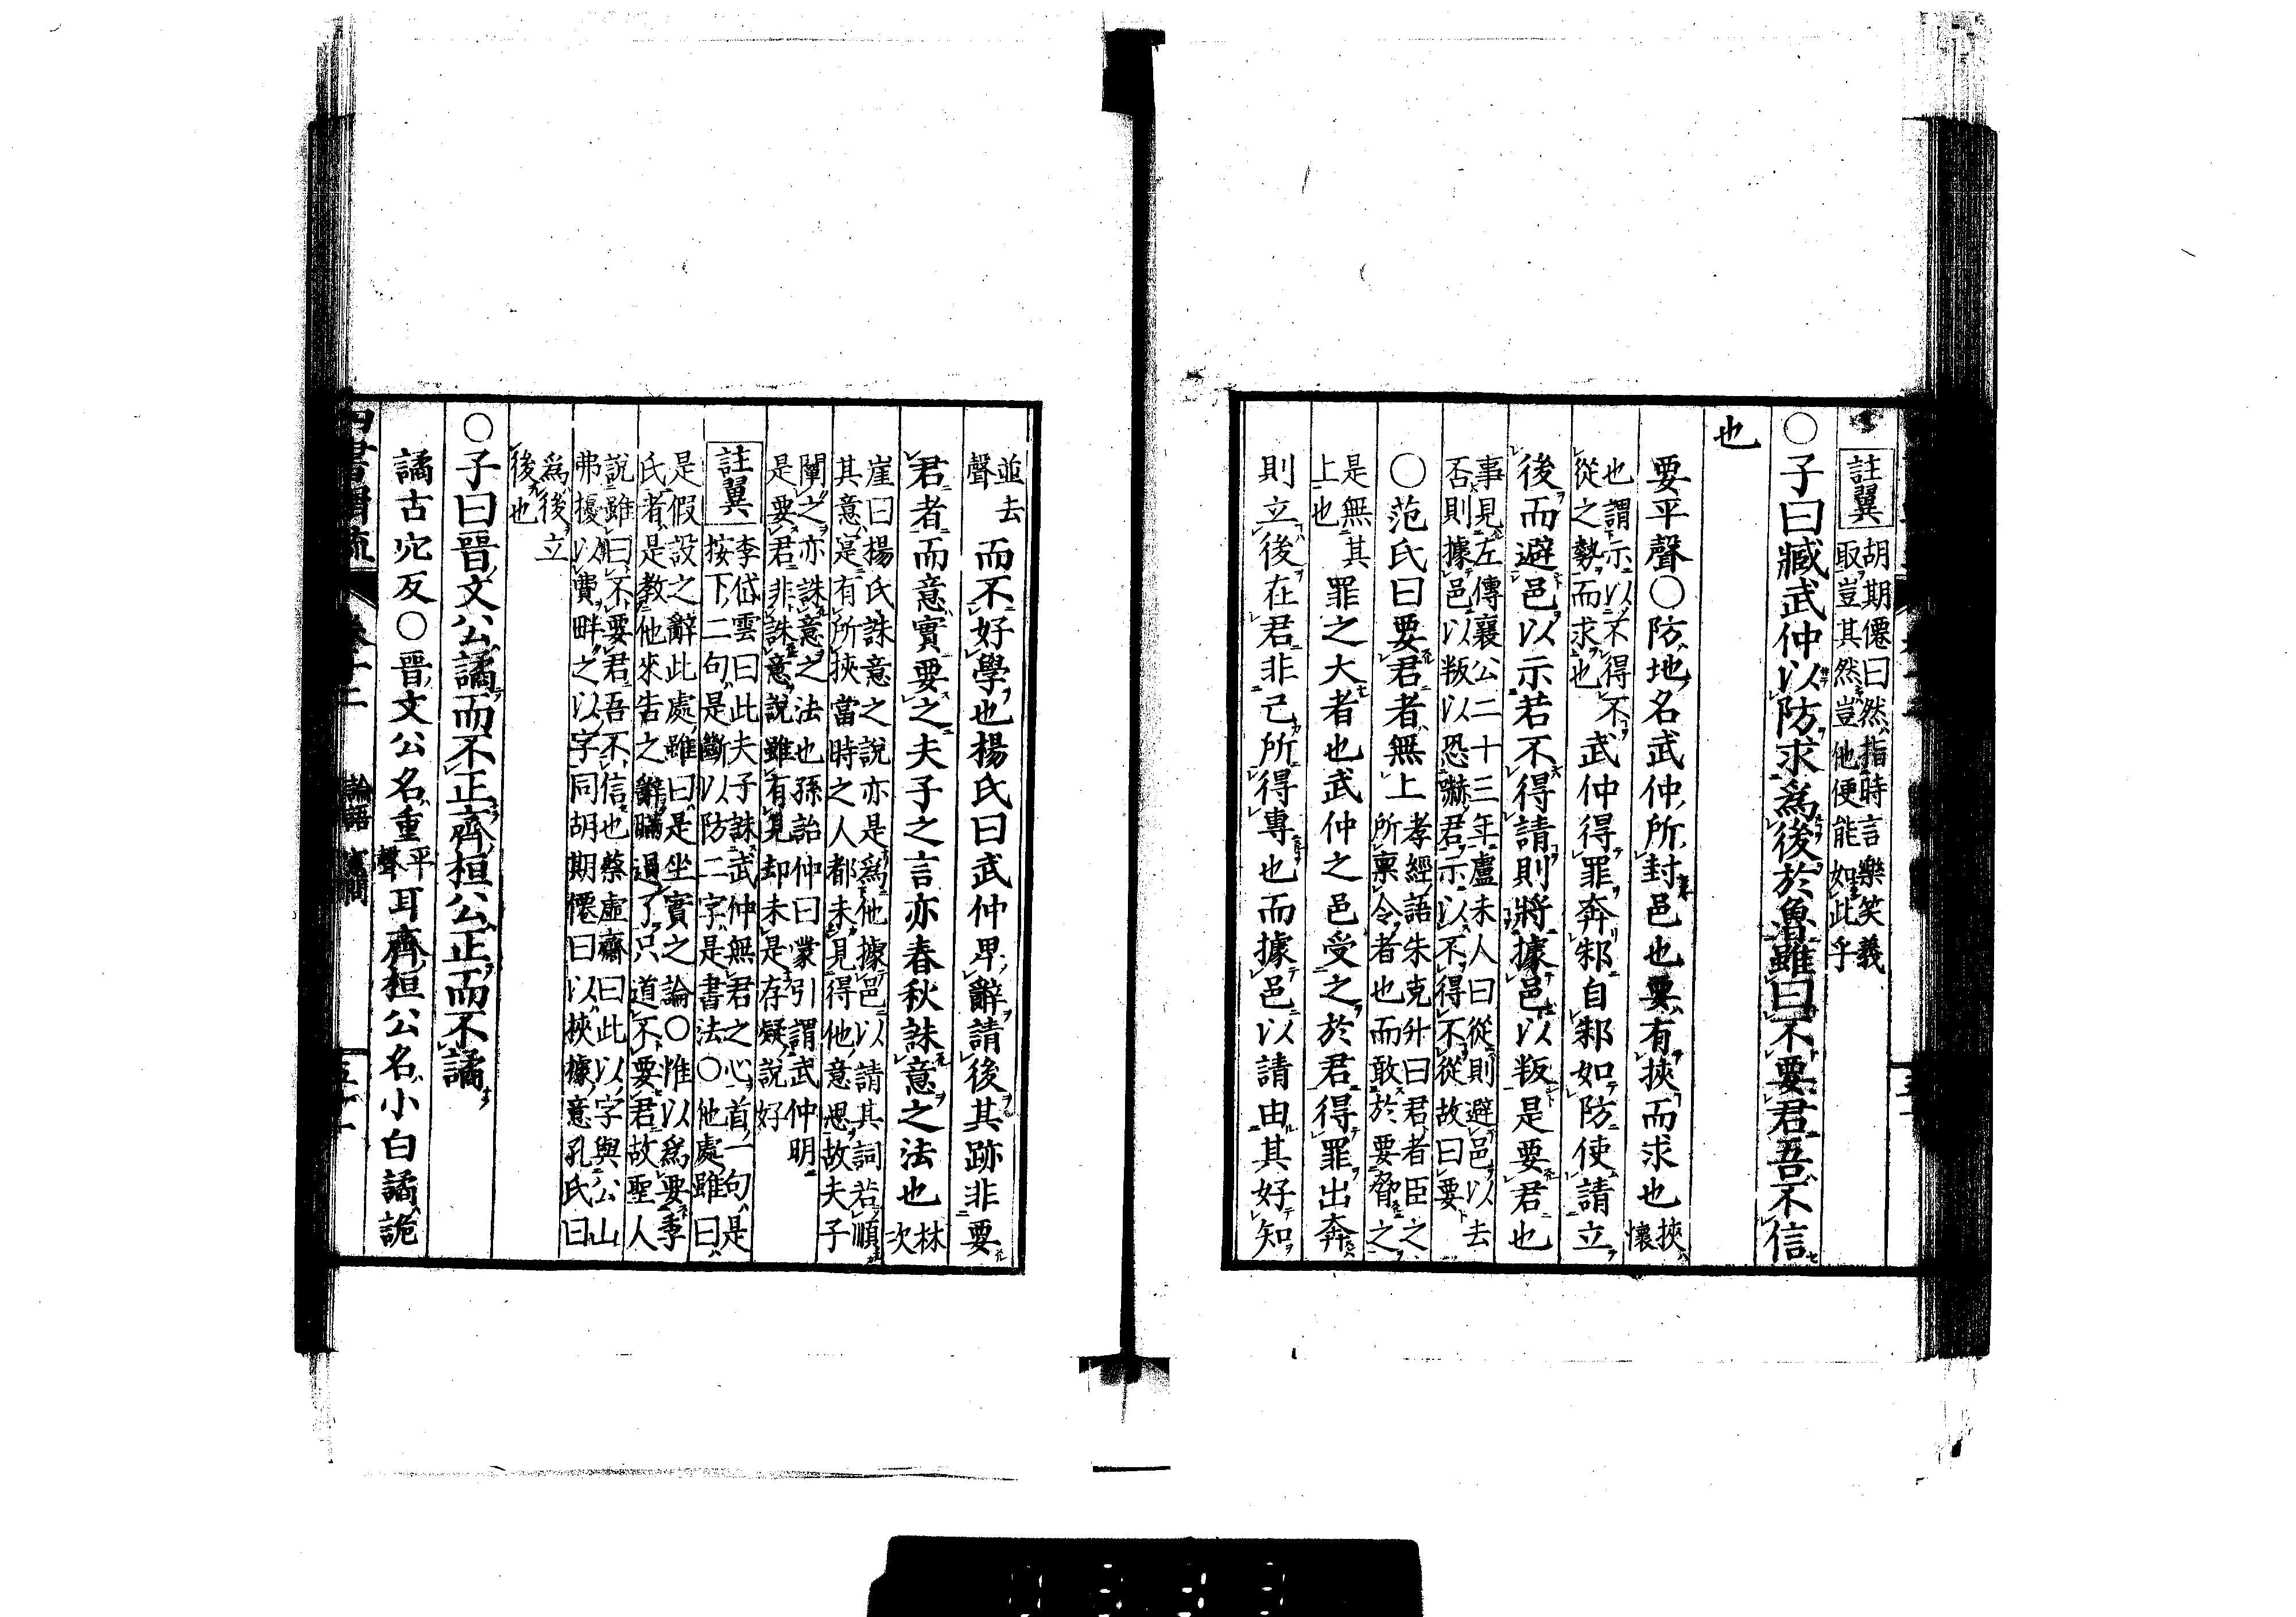 註翼 胡期僊曰然指時言樂笑義
取豈其然豈他便能如此乎
○子曰臧武仲以防求爲後於魯雖曰不要君吾不信
也
要平聲○防地名武仲所封邑也要有挾而求也 挾
懷
也謂示以不得不
從之勢而求也
武仲得罪奔邾自邾如防使請立
後而避邑以示若不得請則將據邑以叛是要君也
事見左傳襄公二十三年盧未人曰從則避邑以去
否則據邑以叛以恐嚇君示以不得不從故曰要
○范氏曰要君者無上
孝經語朱克升曰君者臣之
所稟令者也而敢於要脅之
是無其
上也
罪之大者也武仲之邑受之於君得罪出奔
則立後在君非己所得專也而據邑以請由其好知
並去
聲
而不好學也楊氏曰武仲卑辭請後其跡非要
君者而意實要之夫子之言亦春秋誅意之法也 林
次
崖曰楊氏誅意之說亦是爲他據邑以請其詞若順
其意寔有所挾當時之人都未見得他意思故夫子
闡之亦誅意之法也孫詒仲曰蒙引謂武仲明
是要君非誅意說雖有見却未是存疑說好
註翼 李岱雲曰此夫子誅武仲無君之心首一句是
按下二句是斷以防二字是書法○他處雖曰
是假設之辭此處雖曰是坐實之論○惟以爲要季
氏者是教他來告之辭瞞過了只道不要君故聖人
說雖曰不要君吾不信也蔡虛齋曰此以字與公山
弗擾以費畔之以字同胡期僊曰以挾據意孔氏曰
爲後立
後也
○子曰晉文公譎而不正齊桓公正而不譎
譎古穴反○晉文公名重
平
聲
耳齊桓公名小白譎詭
卷十二 論語 憲問